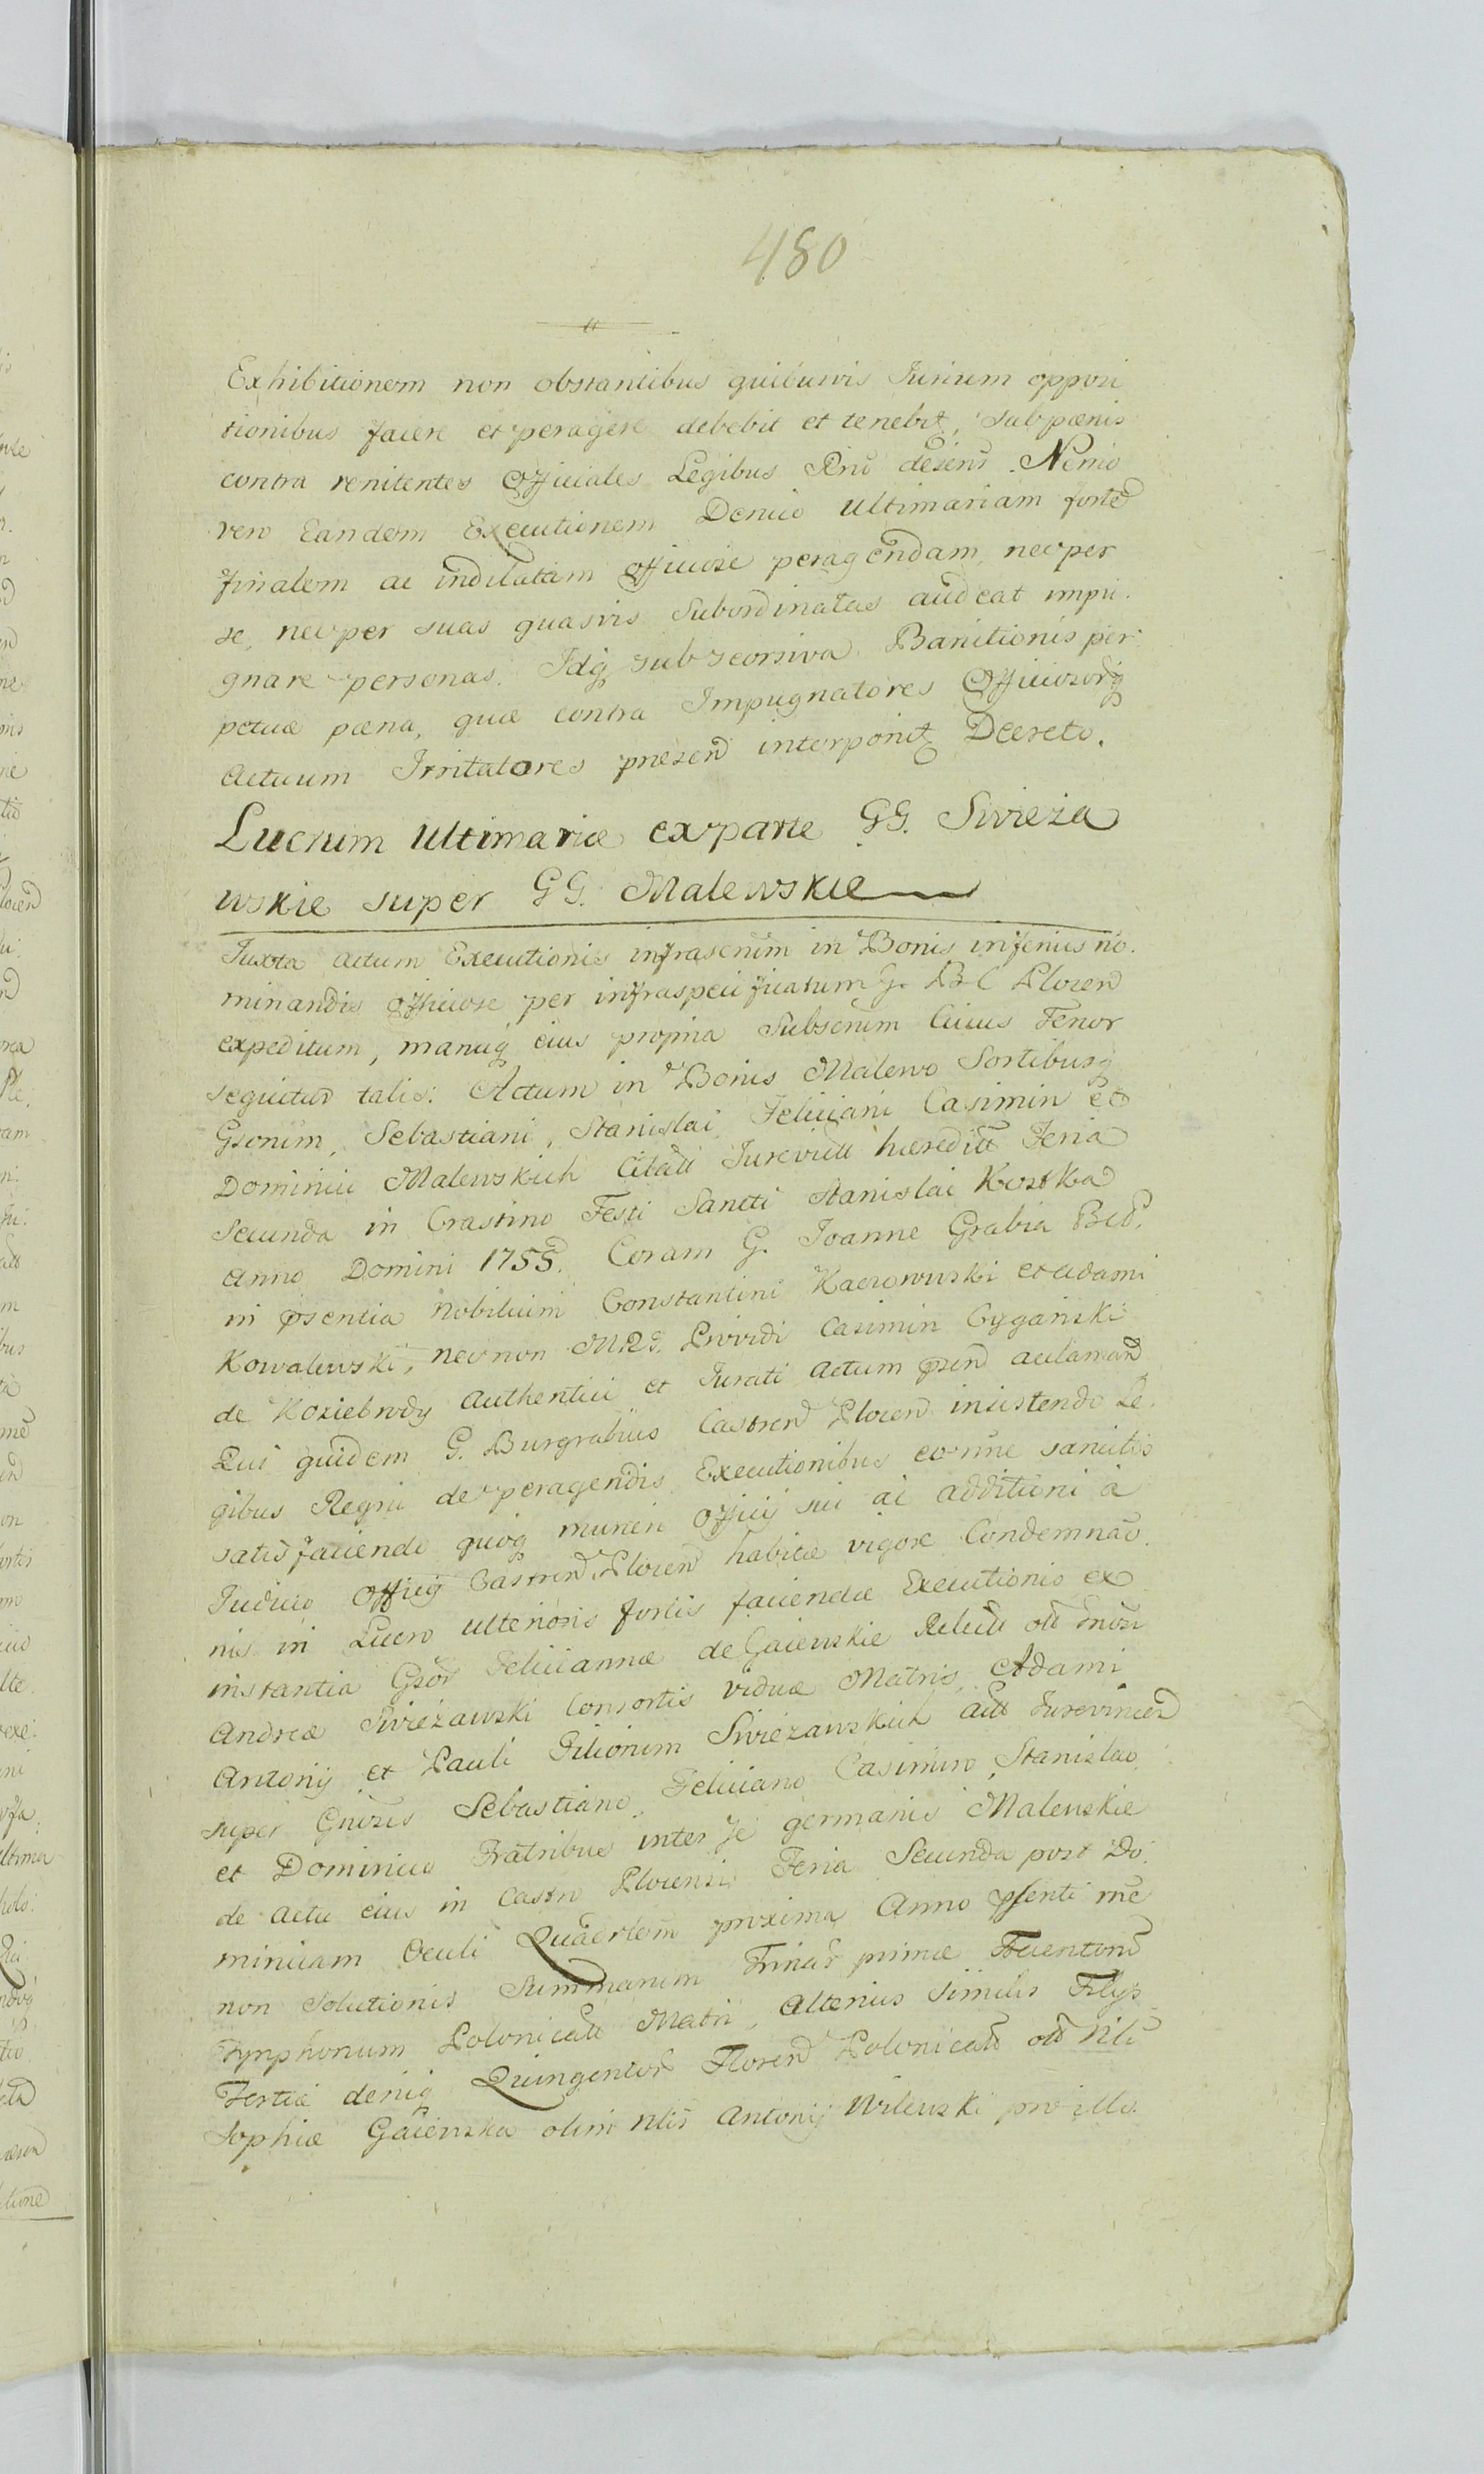 480
Exhibitionem non obstantibus quibusvis Jurium opposi
tionibus facere et peragere debebit et tenebit, sub pænis
contra renitentes Officiales Legibus Rni descriis. Nemo
vero Eandem Executionem Denuo Ultimariam forte
finalem ac indilatam officiose peragendam, nec per
se, nec per suas quasvis Subordinatas audeat impu.
gnare personas. Idq sub seorsiva Banitionis per
petuæ pæna, quæ contra Impugnatores Officiosorq
Actuum Irritatores præsend interponit Decreto.
Lucrum Ultimariæ ex parte GG. Swieża
wskie super GG. Malewskie
Juxta Actum Executionis infrascrum in Bonis inferius no.
minandis officiose per infraspecificatum G. B C Plocen
expeditum, manuq eius propria Subscrum Cuius Tenor
sequitur talis: Actum in Bonis Malewo Sortibusq
Gsorum, Sebastiani, Stanislai, Feliciani Casimiri et
Dominici Malewskich Citati Jurevicti hæredit Feria
Secunda in Crastino Festi Sancti Stanislai Kostka
Anno Domini 1755. Coram G. Joanne Grabia BCP.
in psentia Nobilium Constantini Kaczowski et Adami
Kowalewski, nec non MRS. Providi Casimiri Cyganski
de Koziebrody Authentici et Jurati Actum psend acclamand
Qui quidem G. Burgrabius Castren Plocen insistendo Le.
gibus Regni de peragendis Executionibus eorme sancitis
satisfaciendo quoq muneri Officij sui ac additioni à
Judicio Officij Castren Plocen habitæ vigore Condemnao.
nis in Lucro ulterioris fortis faciendæ Executionis ex
instantia Gsor Feliciannæ de Gaiewskie Relictæ olī Gnosi
Andreæ Swieżawski Consortis viduæ Matris, Adami
Antonij et Pauli Filiorum Swieżawskich Actt Jurevincen
super Gnosis Sebastiano, Feliciano Casimiro, Stanislao
et Dominico Fratribus inter se germanis Malewskie
de Actu eius in Castro Plocensi Feria Secunda post Do.
minicam Oculi Quadrlem proxima Anno psenti rne
non Solutionis Summarum Trinar primæ Trecentorū
Tynphonum Polonicali Matri, Alterius similis Filijs
Tertiæ deniq Quingentor Floren Polonicali olī Nli
Sophiæ Gaiewska olim Nlis Antonij Wilewski pro illo.